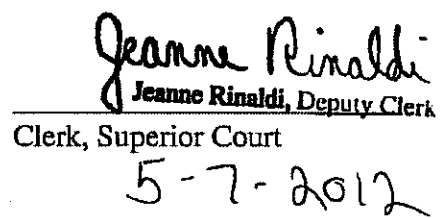 Jeanne Rinaldi
Jeanne Rinaldi, Deputy Clerk
Clerk, Superior Court
5-7-2012